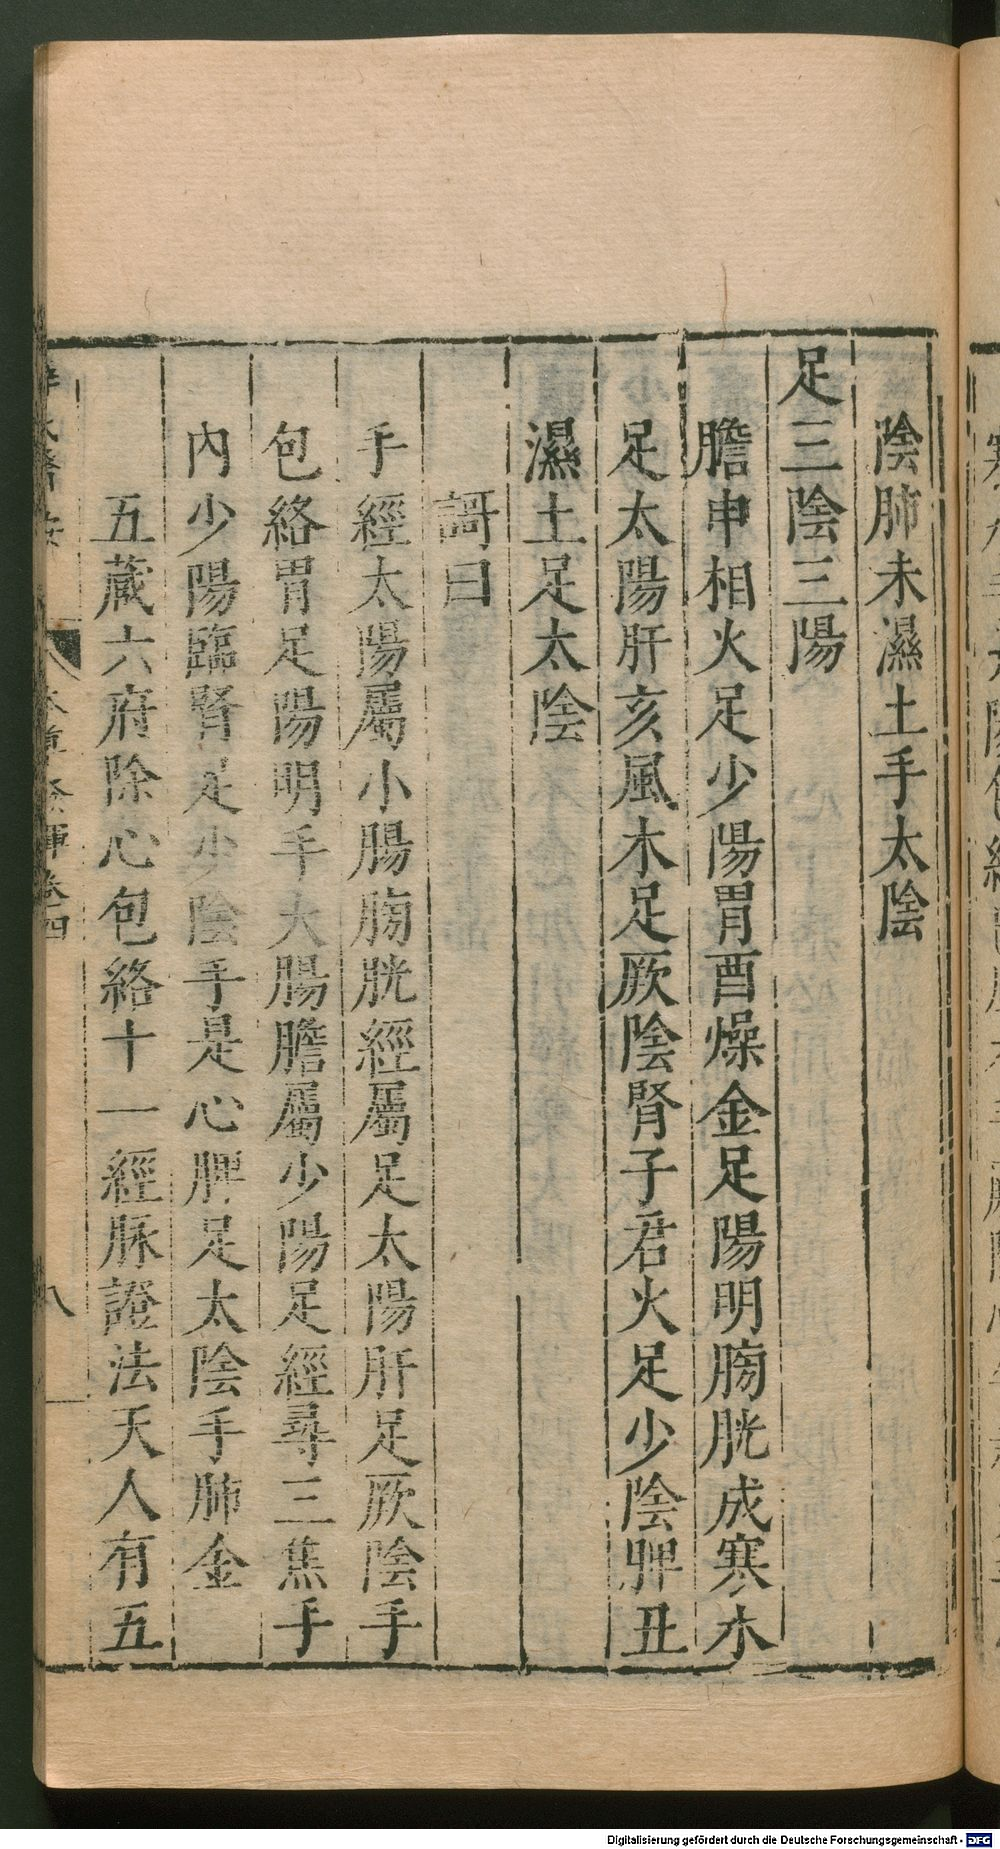 陰肺未濕土手太陰
足三陰三陽
膽申相火足少陽胃酉燥金足陽明膀胱成寒水
足太陽肝亥風木足厥陰腎子君火足少陰脾丑
濕土足太陰
謌曰
手經太陽屬小腸膀胱經屬足太陽肝足厥陰手
包絡胃足陽明手大腸膽屬少陽足經尋三焦手
內少陽臨腎足少陰手是心脾足太陰手肺金
五蔵六府除心包絡十一經脉證法天人有五
八
Digitalisierung gefördert durch die Deutsche Forschungsgemeinschaft - DFG